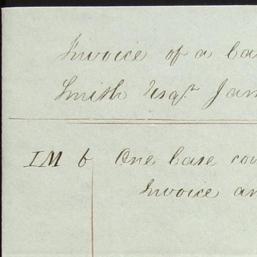 Invoice of a Ca
Smith Esqr Jam
IM 6 One Case con
Invoice an